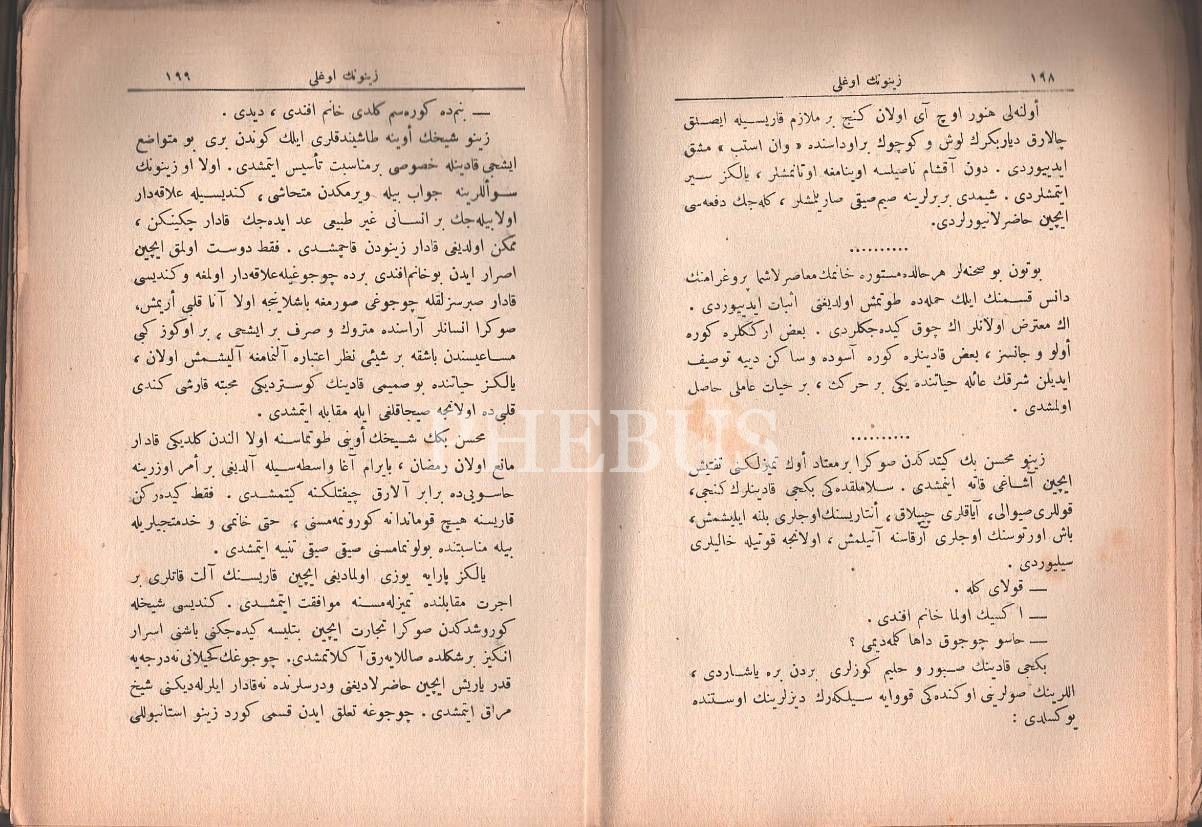 ١٩٨
زينونك اوغلى
أولنه‌لى هنوز اوچ آى اولان كنج بر ملازم قاريسيله ايصلق
چالارق دياربكرك لوش و كوچوك بر اوداسنده « وان استپ » مشق
ايدييوردى . دون آقشام ناصيلسه اوينامغه اوتانمشلر ، يالكز سير
ايتمشلردى . شيمدى بربرلرينه صيم‌صيقى صاريلمشلر ، كله‌جك دفعه‌سى
ايچين حاضرلانيورلردى.
..........
بوتون بو صحنه‌لر هر حالده مستوره خانمك معاصرلاشما پروغرامنك
دانس قسمنك ايلك حمله‌ده طوتمش اولديغنى اثبات ايدييوردى .
اك معترض اولانلر اك چوق كيده‌جكلردى . بعض ارككلره كوره
أولو و جانسز ، بعض قادينلره كوره آسوده و ساكن دييه توصيف
ايديلن شرقك عائله حياتنده يكى بر حركت ، بر حيات عاملى حاصل
اولمشدى .
..........
زينو محسن بك كيتدكدن صوكرا برمعتاد أوك تميزلكنى تفتيش
ايچين آشاغى قاته اينمشدى . سلاملقده‌كى بكجى قادينلرك كنجى،
قوللرى صيوالى، آياقلرى چيپلاق ، أنتاريسنك اوجلرى بلنه ايليشمش،
باش اورتوسنك اوجلرى آرقاسنه آتيلمش ، اولانجه قوتيله خاليلرى
سيليوردى .
— قولاى كله .
— اكسيك اولما خانم افندى .
— حاسو چوجوق داها كلمه‌ديمى ؟
بكجى قادينك صبور و حليم كوزلرى بردن بره ياشاردى ،
اللرينك صولرينى اوكنده‌كى قووايه سيلكه‌رك ديزلرينك اوستنده
يوكسلدى :
زينونك اوغلى
١٩٩
— بنم‌ده كوره‌سم كلدى خانم افندى ، ديدى .
زينو شيخك أوينه طاشيندقلرى ايلك كوندن برى بو متواضع
ايشجى قادينله خصوصى برمناسبت تأسيس ايتمشدى . اولا او زينونك
سؤاللرينه جواب بيله ويرمكدن متحاشى ، كنديسيله علاقه‌دار
اولابيله‌جك بر انسانى غير طبيعى عد ايده‌جك قادار چكينكن ،
ممكن اولديغى قادار زينودن قاچمشدى . فقط دوست اولمق ايچين
اصرار ايدن بوخانم‌افندى برده چوجوغيله علاقه‌دار اولمغه و كنديسى
قادار صبرسزلقله چوجوغى صورمغه باشلاينجه اولا آنا قلبى أريمش،
صوكرا انسانلر آراسنده متروك و صرف بر ايشجى ، بر اوكوز كبى
مساعيسندن باشقه بر شيئى نظر اعتباره آلنمامغه آليشمش اولان ،
يالكز حياتنده بو صميمى قادينك كوستردیكى محبته قارشى كندى
قلبى‌ده اولانجه صيجاقلغى ايله مقابله ايتمشدى .
محسن بكك شيخك أوينى طوتماسنه اولا الندن كلديكى قادار
مانع اولان رمضان ، بايرام آغا واسطه‌سيله آلديغى بر أمر اوزرينه
حاسويى‌ده برابر آلارق چيفتلكنه كيتمشدى . فقط كيده‌ركن
قاريسنه هيچ قومانداnه كورونمه‌مسنى ، حتى خانمى و خدمتجيلريله
بيله مناسبتده بولونمامسنى صيقى صيقى تنبيه ايتمشدى .
يالكز پارايه يوزى اولماديغى ايچين قاريسنك آلت قاتلرى بر
اجرت مقابلنده تميزله‌مسنه موافقت ايتمشدى . كنديسى شيخله
كوروشدكدن صوكرا تجارت ايچين بتليسه كيده‌جكنى باشنى اسرار
انكيز برشكلده صاللايه‌رق آكلاتمشدى. چوجوغك نه‌درجه‌يه
قدر ياريش ايچين حاضرلاديغنى و درسلرنده نه‌قادار ايلرله‌ديكنى شيخ
مراق ايتمشدى . چوجوغه تعلق ايدن قسمى كورد زينو استانبوللى
PHEBUS